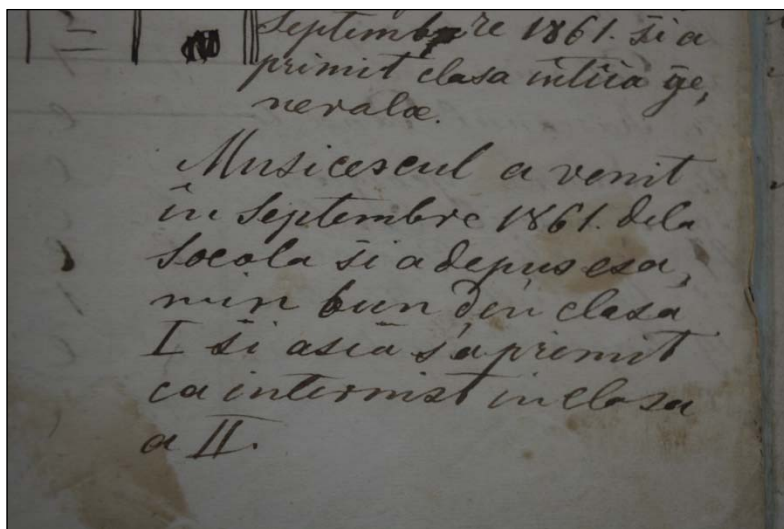 Septembre 1861. și a
primit clasa intiia ge,
nerala.
Musicescul a venit
în Septembre 1861. dela
Socola și a depus esa,
min bun din clasa
I și asia s'a primit
ca internist in clasa
a II.